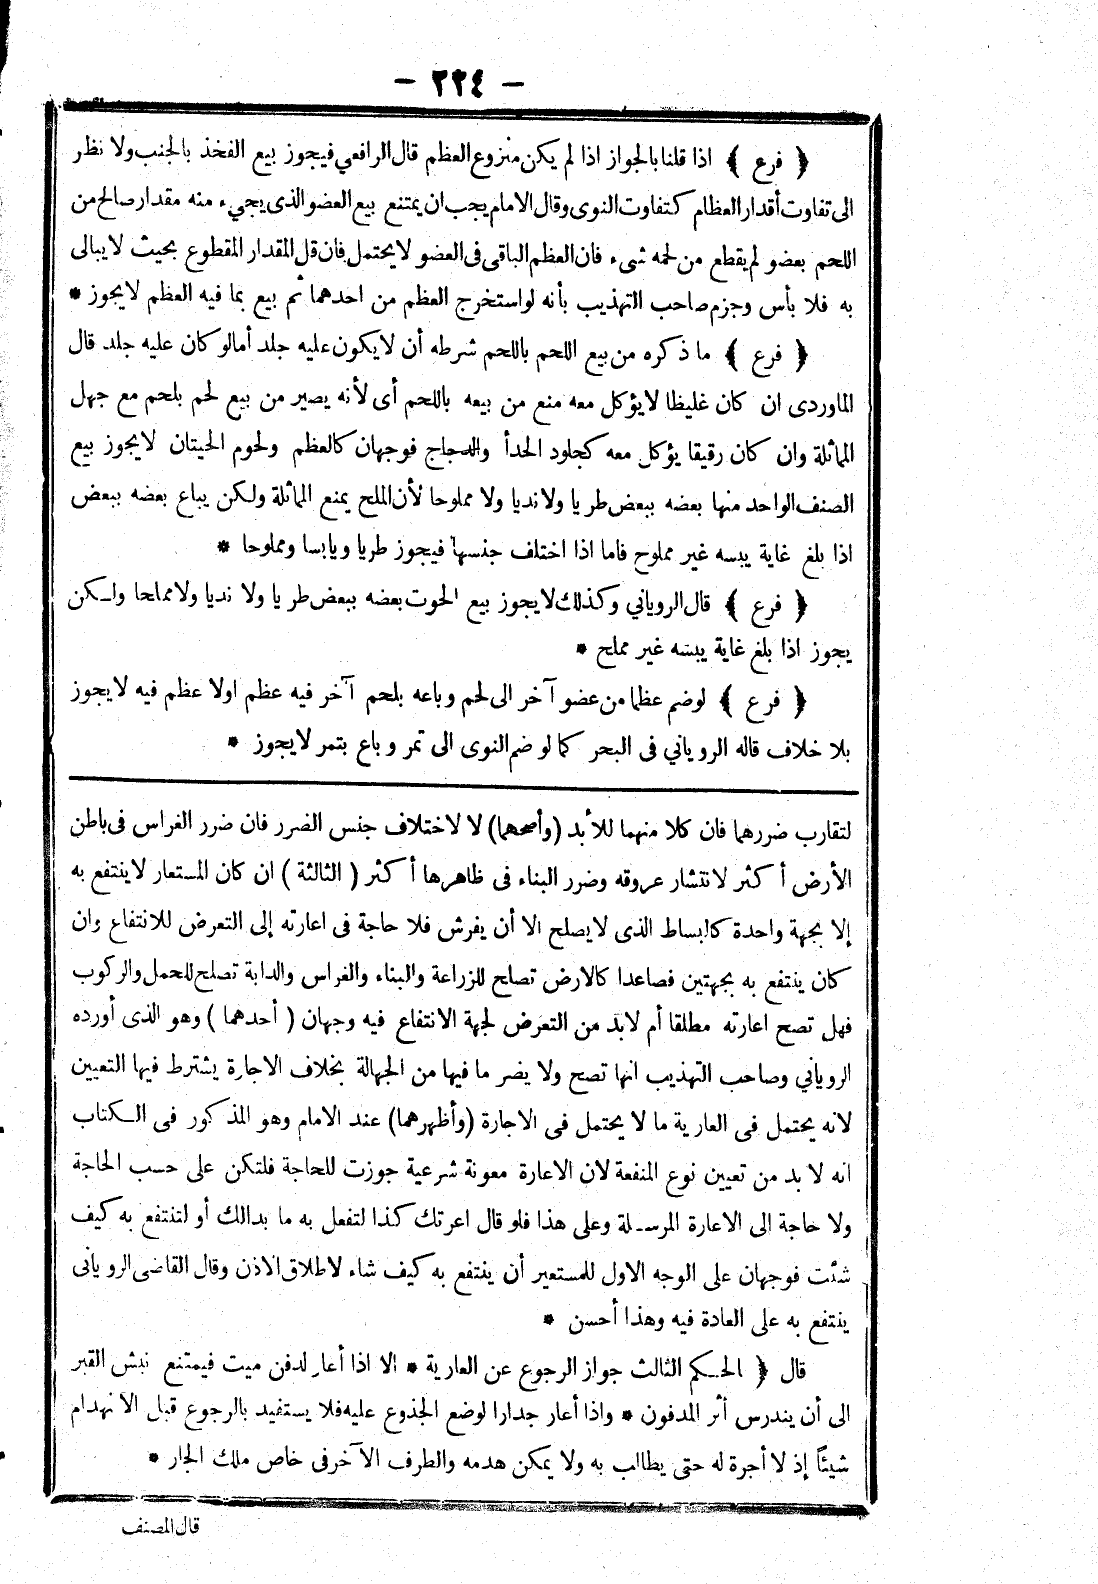 - ٢٢٤ -
﴿ فرع ﴾ اذا قلنا بالجواز اذا لم يكن منزوع العظم قال الرافعي فيجوز بيع الفخذ بالجنب ولا نظر
الى تفاوت أقدار العظام كتفاوت النوى وقال الامام يجب ان يمتنع بيع العضو الذى يجيء منه مقدار صالح من
اللحم بعضو لم يقطع من لحمه شىء فان العظم الباقى فى العضو لا يحتمل فان قل المقدار المقطوع بحيث لا يبالى
به فلا بأس وجزم صاحب التهذيب بأنه لو استخرج العظم من احدهما ثم بيع بما فيه العظم لا يجوز *
﴿ فرع ﴾ ما ذكره من بيع اللحم باللحم شرطه أن لا يكون عليه جلد أما لو كان عليه جلد قال
الماوردى ان كان غليظا لا يؤكل معه منع من بيعه باللحم أى لأنه يصير من بيع لحم بلحم مع جهل
المماثلة وان كان رقيقا يؤكل معه كجلود الحدأ والدجاج فوجهان كالعظم ولحوم الحيتان لا يجوز بيع
الصنف الواحد منها بعضه ببعض طريا ولا نديا ولا مملوحا لأن الملح يمنع المماثلة ولكن يباع بعضه ببعض
اذا بلغ غاية يبسه غير مملوح فاما اذا اختلف جنسها فيجوز طريا ويابسا ومملوحا *
﴿ فرع ﴾ قال الرويانى وكذلك لا يجوز بيع الحوت بعضه ببعض طريا ولا نديا ولا مملحا ولكن
يجوز اذا بلغ غاية يبسه غير مملح *
﴿ فرع ﴾ لو ضم عظما من عضو آخر الى لحم وباعه بلحم آخر فيه عظم اولا عظم فيه لا يجوز
بلا خلاف قاله الرويانى فى البحر كما لو ضم النوى الى تمر وباع بتمر لا يجوز *
لتقارب ضررهما فان كلا منهما للأبد (وأصحهما) لا لاختلاف جنس الضرر فان ضرر الغراس فى باطن
الأرض أكثر لانتشار عروقه وضرر البناء فى ظاهرها أكثر ( الثالثة ) ان كان المستعار لا ينتفع به
إلا بجهة واحدة كالبساط الذى لا يصلح الا أن يفرش فلا حاجة فى اعارته إلى التعرض للانتفاع وان
كان ينتفع به بجهتين فصاعدا كالارض تصلح للزراعة والبناء والغراس والدابة تصلح للحمل والركوب
فهل تصح اعارته مطلقا أم لابد من التعرض لجهة الانتفاع فيه وجهان ( أحدهما ) وهو الذى أورده
الرويانى وصاحب التهذيب انها تصح ولا يضر ما فيها من الجهالة بخلاف الاجارة يشترط فيها التعيين
لانه يحتمل فى العارية ما لا يحتمل فى الاجارة (وأظهرهما) عند الامام وهو المذكور فى الكتاب
انه لا بد من تعيين نوع المنفعة لان الاعارة معونة شرعية جوزت للحاجة فلتكن على حسب الحاجة
ولا حاجة الى الاعارة المرسلة وعلى هذا فلو قال اعرتك كذا لتفعل به ما بدالك أو لتنتفع به كيف
شئت فوجهان على الوجه الاول للمستعير أن ينتفع به كيف شاء لاطلاق الاذن وقال القاضى الرويانى
ينتفع به على العادة فيه وهذا أحسن *
قال ﴿ الحكم الثالث جواز الرجوع عن العارية * الا اذا أعار لدفن ميت فيمتنع نبش القبر
الى أن يندرس أثر المدفون * واذا أعار جدارا لوضع الجذوع عليه فلا يستفيد بالرجوع قبل الانهدام
شيئًا إذ لا أجرة له حتى يطالب به ولا يمكن هدمه والطرف الآخر فى خاص ملك الجار *
قال المصنف